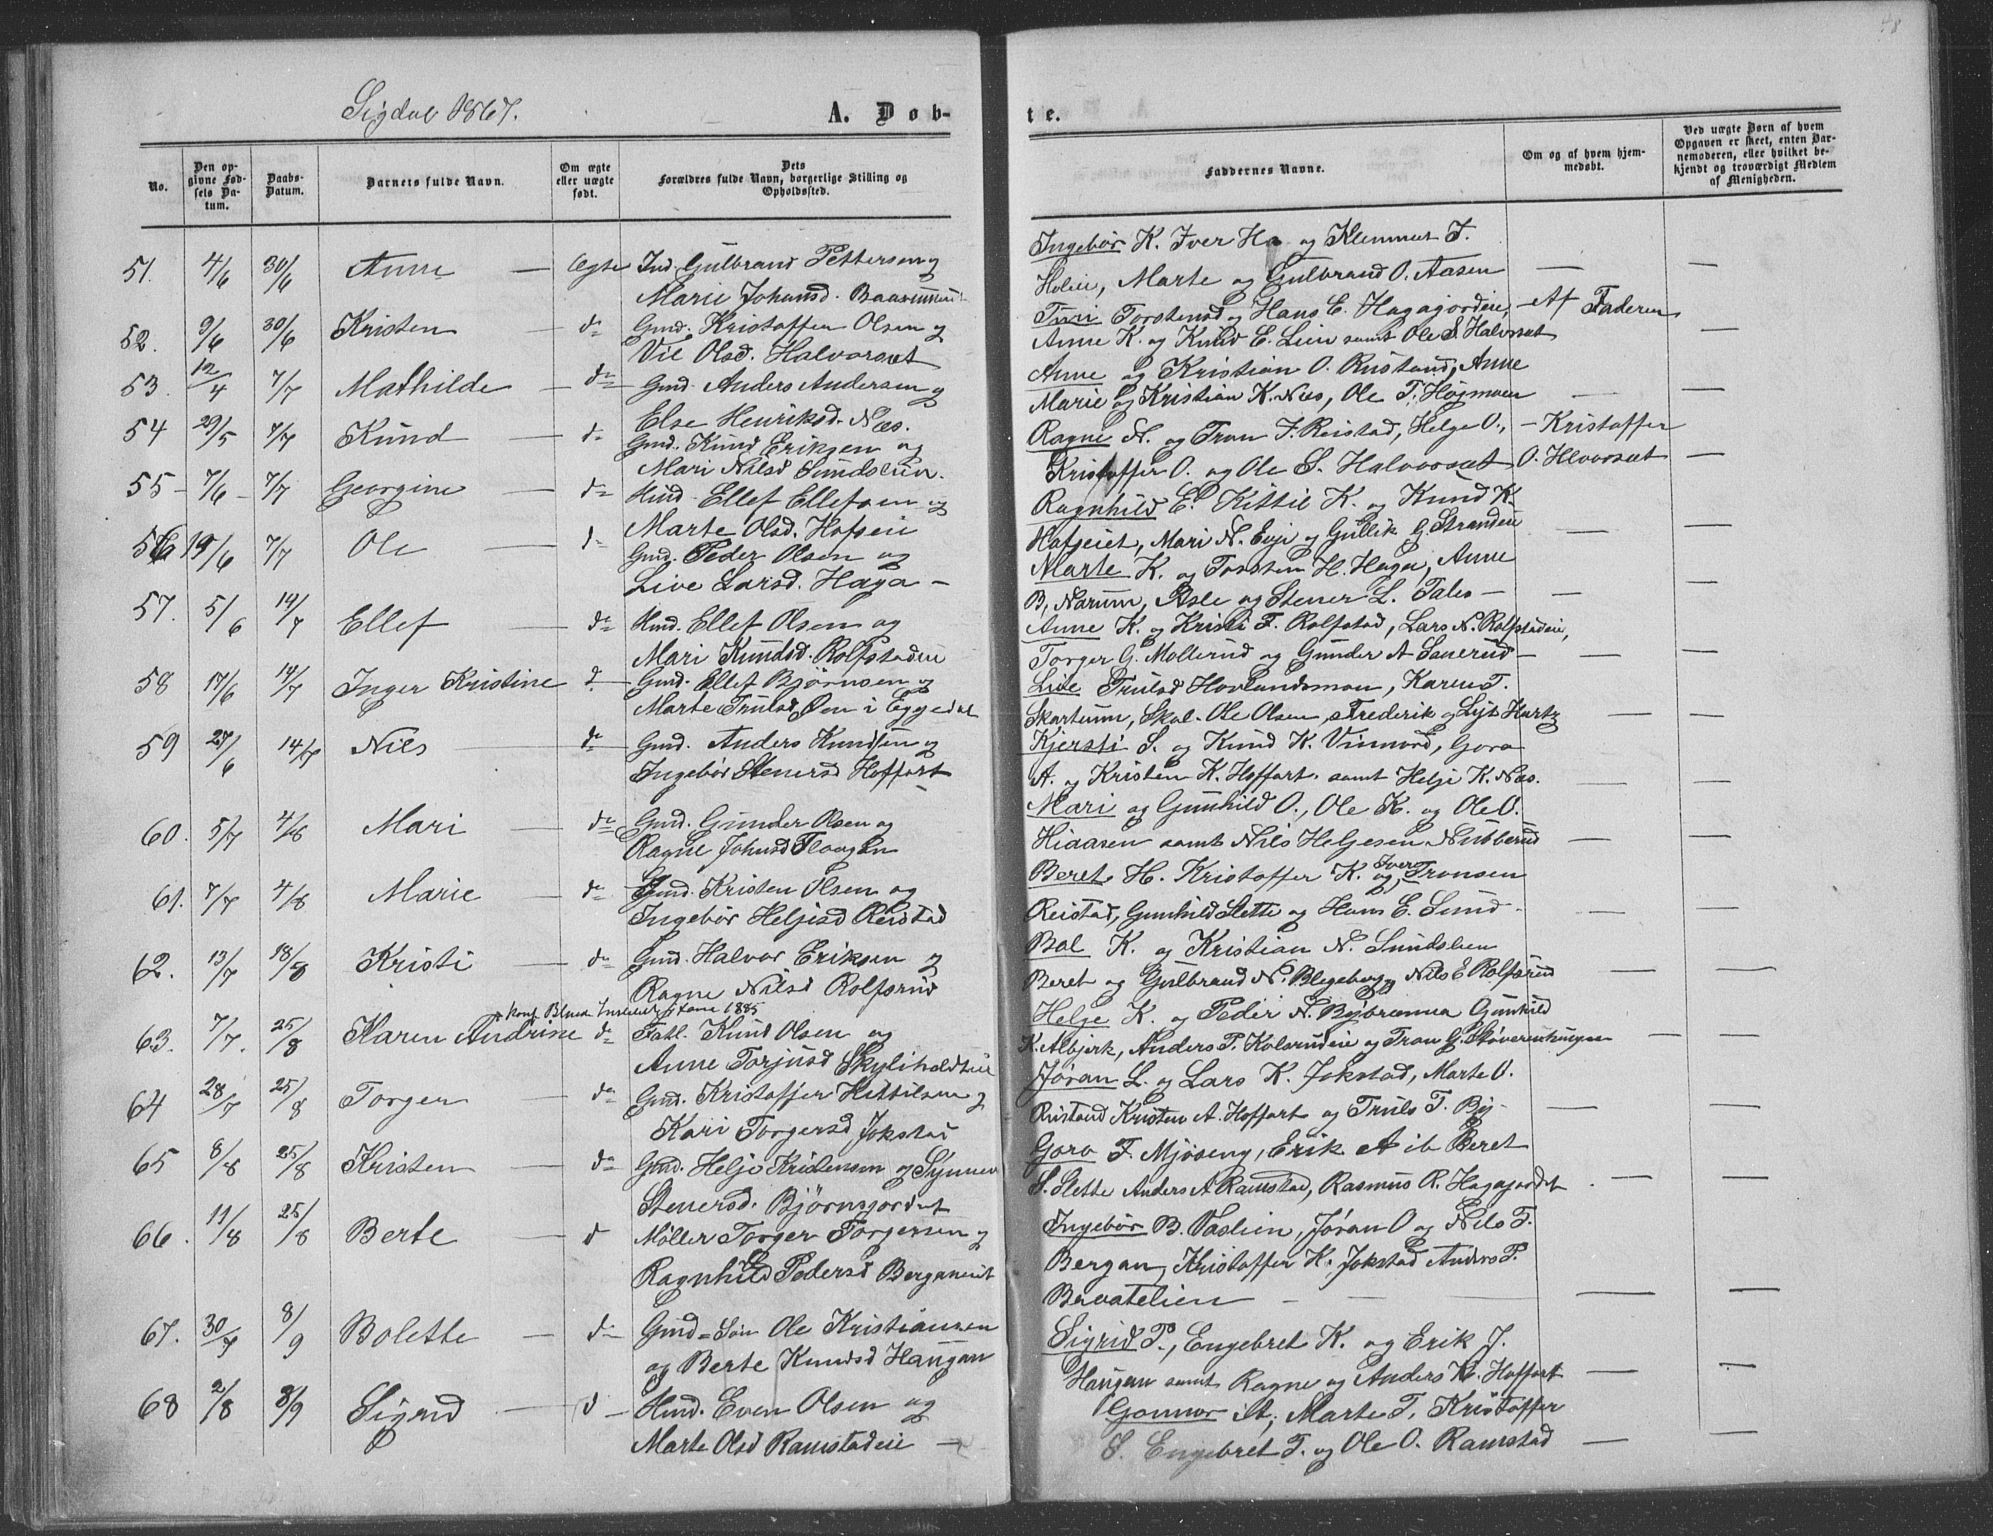 48
Sigdal 1867.
A. Døb-
te.
No.
Den op-
givne Fød-
sels Da-
tum.
Daabs-
Datum.
Barnets fulde Navn.
Om ægte
eller uægte
født.
Dets
Forældres fulde Navn, borgerlige Stilling og
Opholdssted.
Faddernes Navne.
Om og af hvem hjem-
medøbt.
Ved uægte Børn af hvem
Opgaven er skeet, enten Bar-
nemoderen, eller hvilket be-
kjendt og troværdigt Medlem
af Menigheden.
51. 4/6 30/6 Anne — Ægte Ind. Gulbrand Pettersen og
Marie Johansd.
Ingebør K. Iver Ha og Klemmet F.
Holeie, Marte og Gulbrand O. Aasen — —
52. 9/6 30/6 Kristen — do Gmd. Kristoffer Olsen og
Vil Olsd. Halvorset
Turi Torstensd og Hans E. Hagagordeie, — Af Faderen
Anne K. og Knud E. Lien samt Ole S Halvorset —
53. 12/4 7/7 Mathilde — do Gmd. Anders Andersen og
Else Henriksd. Næs.
Anne og Kristian O. Rustand, Anne
Marie og Kristian K. Næs, Ole T. Høgmoen — —
54 29/5 7/7 Knud — do Gmd. Knud Eriksen og
Mari Nilsd Sundslien.
Ragne N. og Tron I. Reistad, Helge O., — Kristoffer
Kristoffer O. og Ole S. Halvorset O. Hlvorset —
55 - 7/6 - 7/7 Georgine — do Hmd. Ellef Ellefsen og
Marte Olsd. Hofseie
Ragnhild E. Kittil K. og Knud K.
Hofseiet, Mari N. Eie og Gullik G. Strandeie — —
56 19/6 7/7 Ole — do Gmd. Peder Olsen og
Live Larsd. Haga —
Marte K. og Torsten H. Haga, Anne
B. Narum, Asle og Stener L. Tales — — —
57. 5/6 14/7 Ellef — do Hmd. Ellef Olsen og
Mari Knudsd. Rolfstadeie
Anne K. og Kristi F. Rolfstad, Lars N. Rolfstadeie,
Torger G. Mollerud og Gunder A Sanerud — —
58 17/6 14/7 Inger Kristine d. Gmd. Ellef Bjørnsen og
Marte Trulsd Øen i Eggedal
Live Trulsd Hovlandsmoen, Karen T.
Skartum, Skol. Ole Olsen, Frederik og Lyt Hartz —
59 27/6 14/7 Nils — do Gmd. Anders Knudsen og
Ingebør Stenersd Hoffart
Kjersti S. og Knud K. Vinnord, Goro
A. og Kristen K. Hoffart samt Helje K. Næs. —
60. 5/7 4/8 Mari — do Gmd. Gunder Olsen og
Ragne Johnsd Flaagan
Mari og Gunhild O., Ole K. og Ole O.
Hiaasen samt Nils Heljesen Nubberud — —
61. 7/7 4/8 Marie — do Gmd. Kristen Olsen og
Ingebør Heljesd Reistad
Beret H. Kristoffer K. og Iver Tronsen
Reistad, Gunhild Slette og Hans E. Sund — —
62. 13/7 18/8 Kristi — do Gmd. Halvor Eriksen og
Ragne Nilsd Rolfsrud
Bol K. og Kristian N. Sundslien
Beret og Gulbrand N. Blegeberg, Nils E Rolfsrud — —
63. 7/7. 25/8 Karen Andrine do Fatl. Knud Olsen og
Anne Torjusd
Helje K. og Peder N. Bybrænna Gunhild
K. Albjerk, Anders P. Kolsrudeie og Tron G. — —
64 28/7 25/8 Torger — do Gmd. Kristoffer Kittilsen og
Kari Torgersd Jokstad
Jøran L. og Lars K. Jokstad, Marte O.
Ristand Kristen A. Hoffart og Truls T. By — — —
65 8/8 25/8 Kristen — do Gmd. Helje Kristensen og Synnev
Stenersd. Bjørnsgordet
Goro F. Mjøseng, Erik A ib Beret
S. Slette Anders A Ramstad, Rasmus R. Hagagordet — —
66. 11/8 25/8 Berte — d Møller Torger Torgersen og
Ragnhild Pedersd Berganeiet
Ingebør B. Vaslien, Jøran O og Nils T.
Bergan, Kristoffer K. Jokstad Anders P.
Bervatelien — — — —
67. 30/7 8/9 Bolette — do Gmd = Søn Ole Kristiansen
og Berte Knudsd Haugan
Sigrid P., Engebret K. og Erik J.
Haugan samt Ragne og Anders K. Hoffart — —
68 2/8 8/9 Sigrid — d — Hmd. Even Olsen og
Marte Olsd Ramstadeie —
Gonnor A, Marte T. Kristoffer
S. Engebret T. og Ole O. Ramstad — —